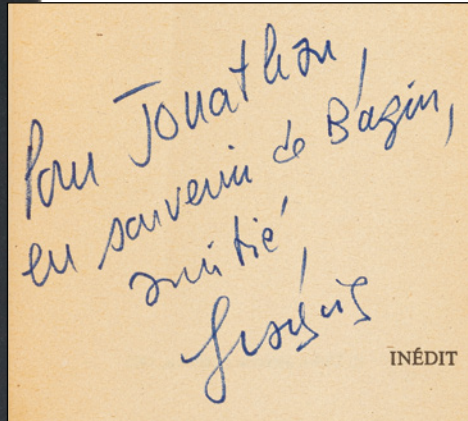 Pour Jonathan,
en souvenir de Bazin,
amitié,
INÉDIT